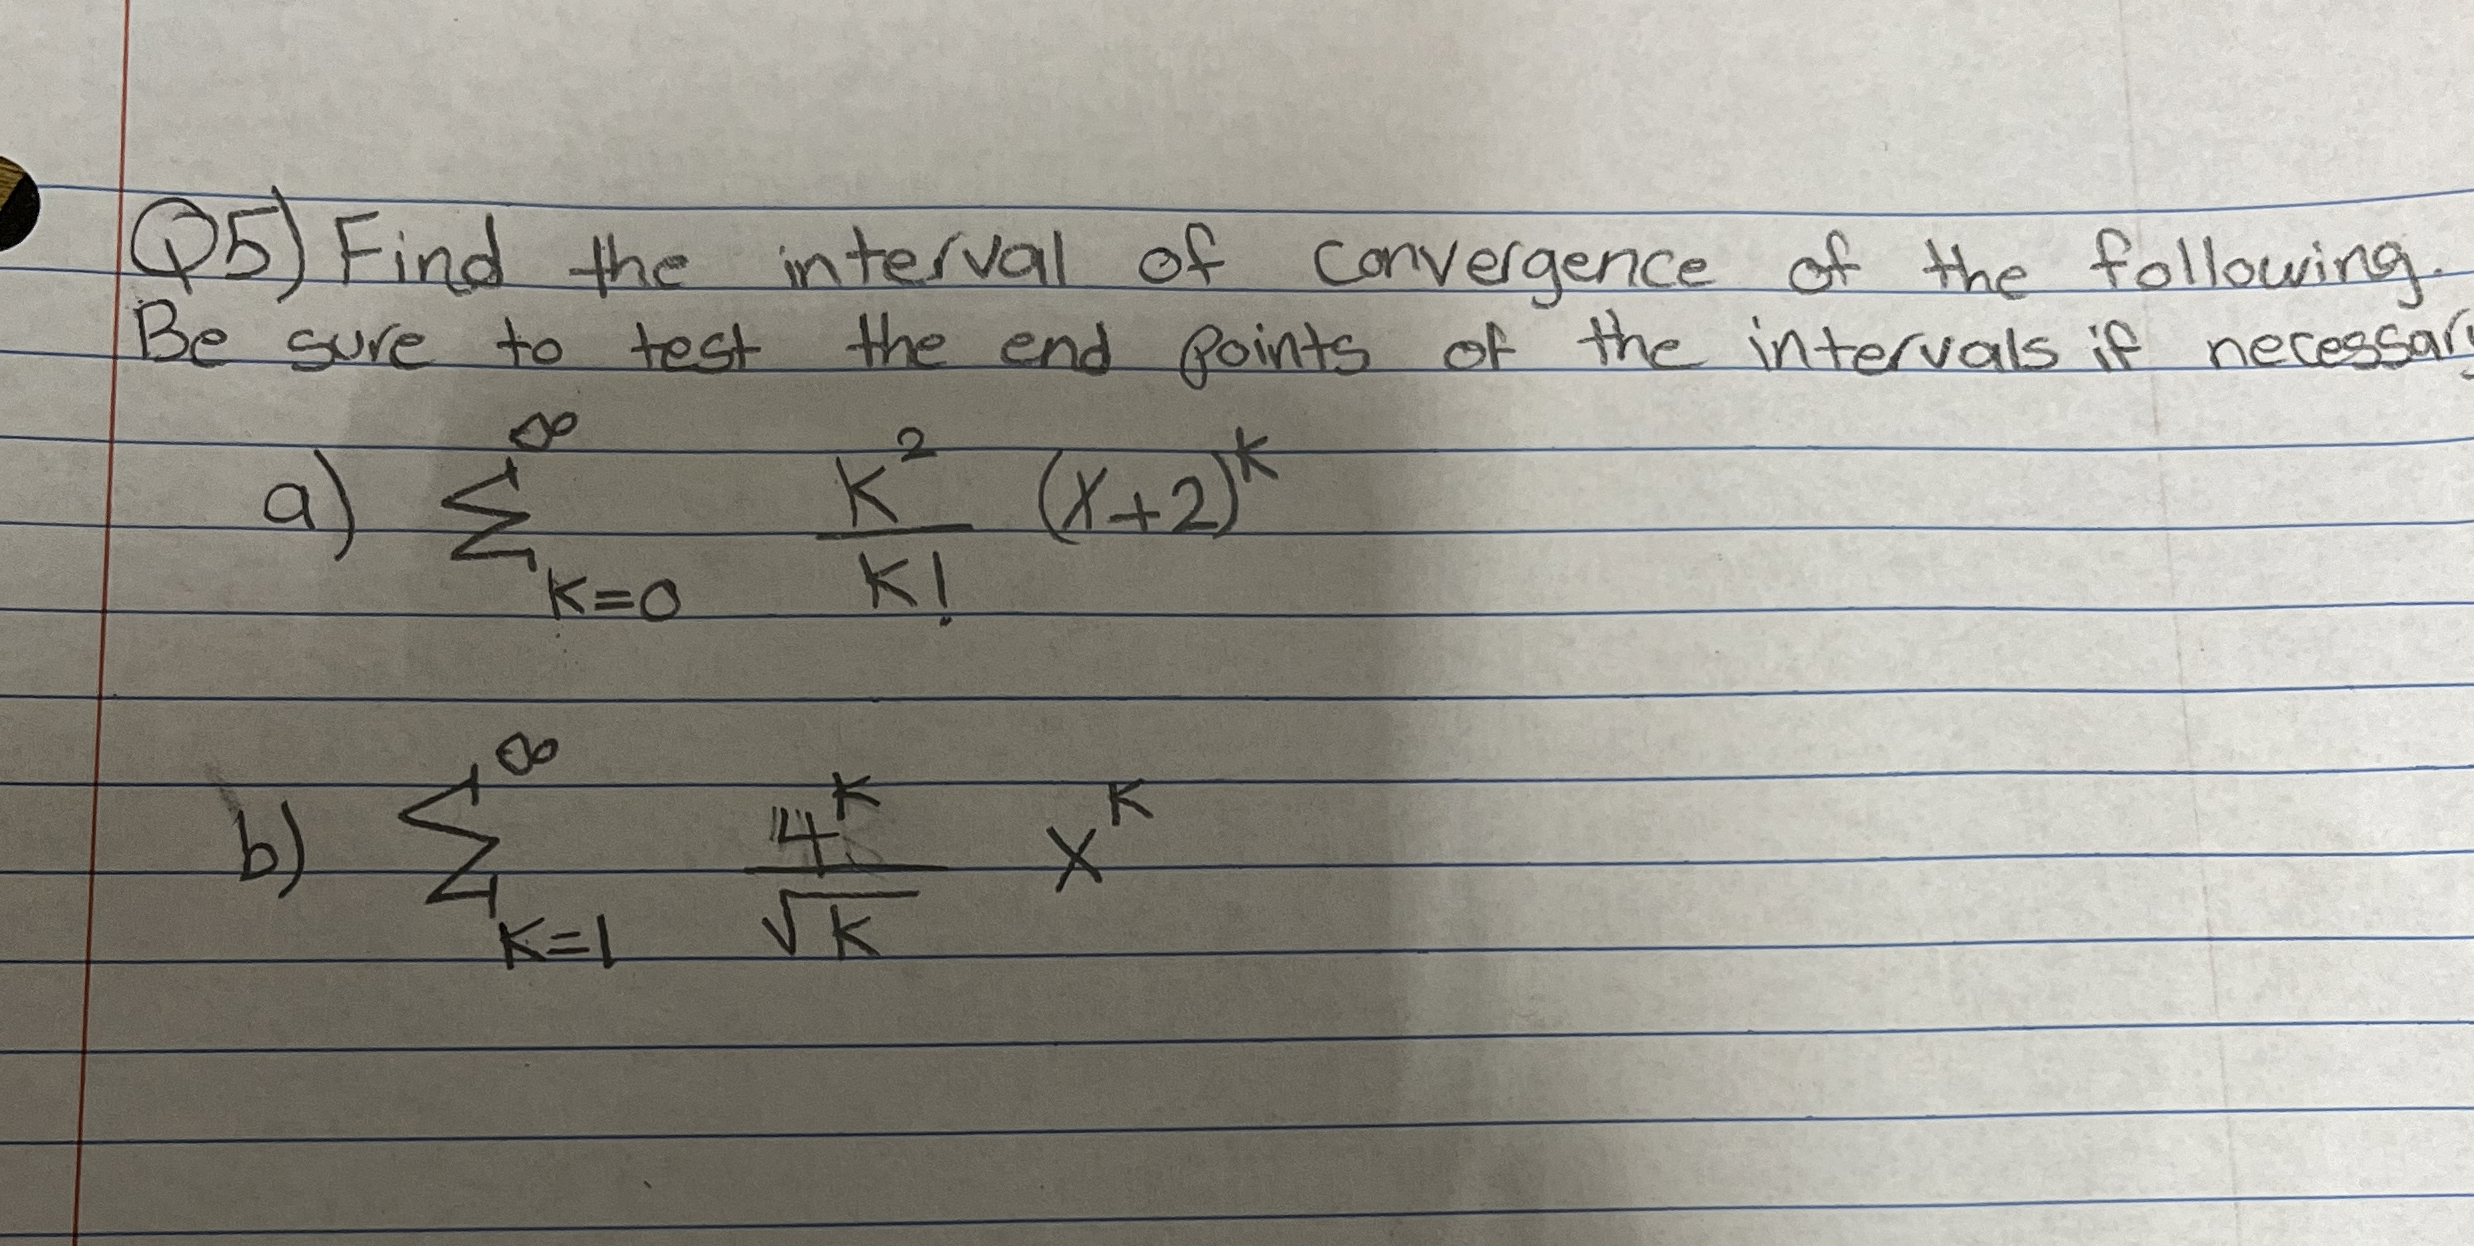 Q5) Find the interval of convergence of the following.
Be sure to test the end points of the intervals if necessary
a) ∑_{K=0}^{∞} K²/K! (x+2)^K
b) ∑_{K=1}^{∞} 4^K/√K x^K